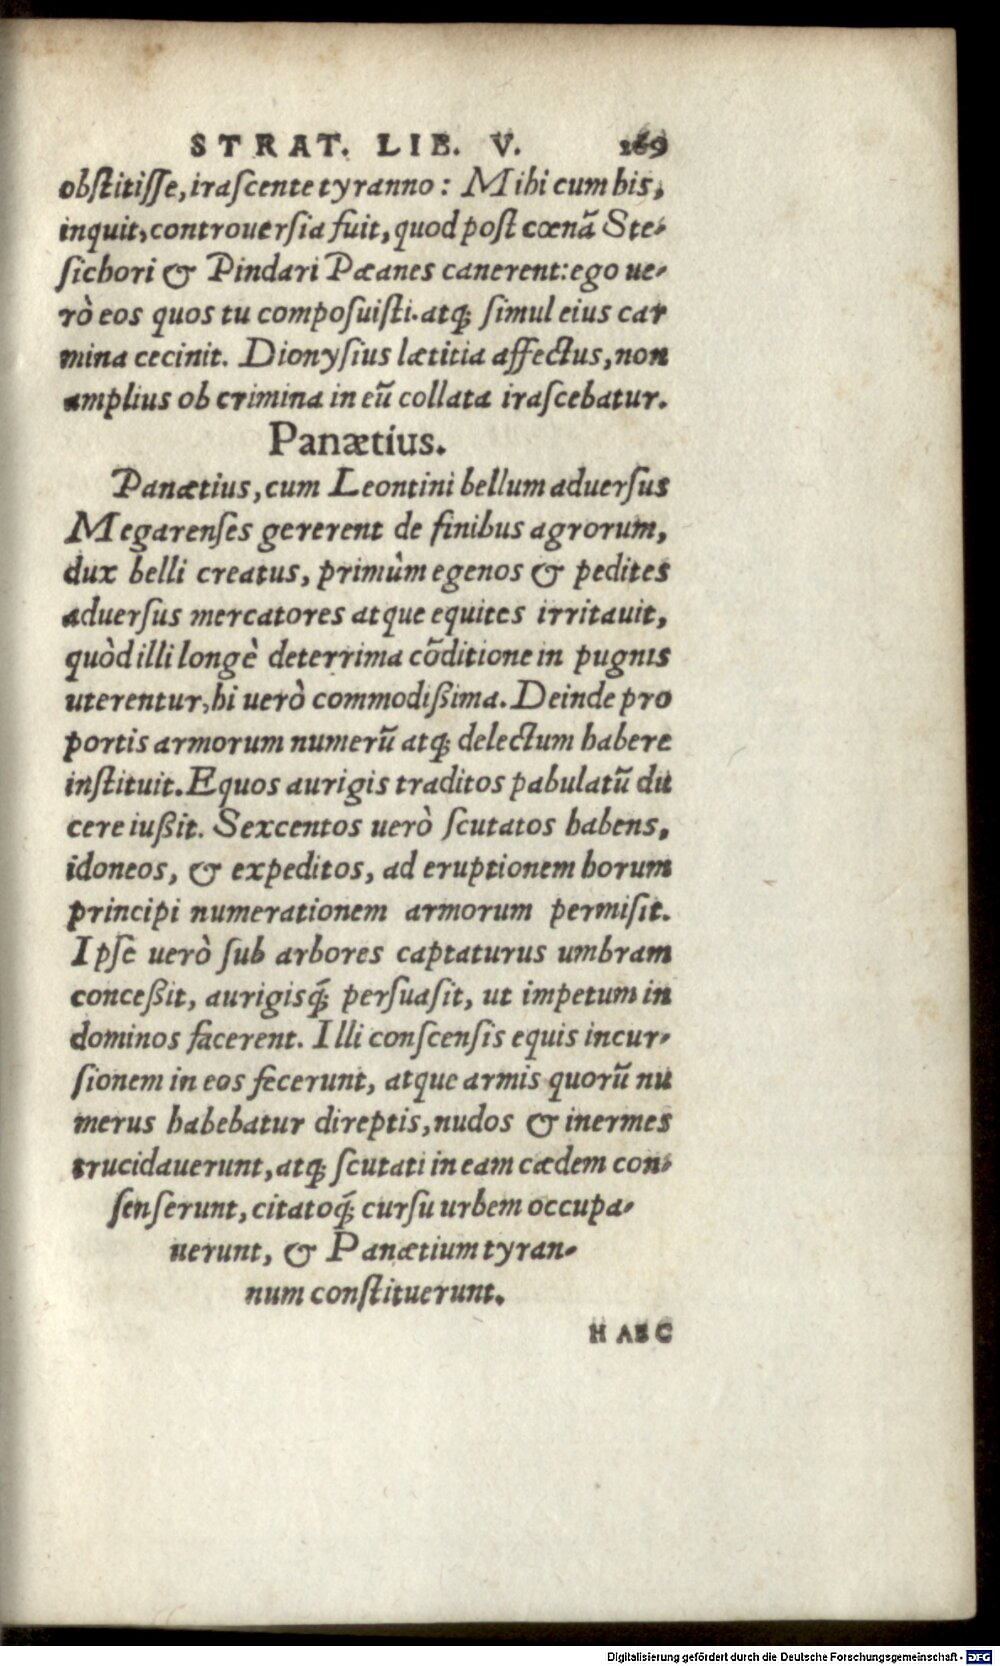 STRAT. LIB. V. 269
obstitisse, irascente tyranno: Mihi cum his,
inquit, controuersia fuit, quod post cœnã Ste-
sichori & Pindari Pæanes canerent: ego ue-
rò eos quos tu composuisti. atq; simul eius car
mina cecinit. Dionysius lætitia affectus, non
amplius ob crimina in eũ collata irascebatur.
Panætius.
Panætius, cum Leontini bellum aduersus
Megarenses gererent de finibus agrorum,
dux belli creatus, primùm egenos & pedites
aduersus mercatores atque equites irritauit,
quòd illi longè deterrima cõditione in pugnis
uterentur, hi uerò commodißima. Deinde pro
portis armorum numerũ atq; delectum habere
instituit. Equos aurigis traditos pabulatũ du
cere iußit. Sexcentos uerò scutatos habens,
idoneos, & expeditos, ad eruptionem horum
principi numerationem armorum permisit.
Ipse uerò sub arbores captaturus umbram
conceßit, aurigisq́; persuasit, ut impetum in
dominos facerent. Illi conscensis equis incur-
sionem in eos fecerunt, atque armis quorũ nu
merus habebatur direptis, nudos & inermes
trucidauerunt, atq; scutati in eam cædem con-
senserunt, citatoq́; cursu urbem occupa-
uerunt, & Panætium tyran-
num constituerunt.
HAEC
Digitalisierung gefördert durch die Deutsche Forschungsgemeinschaft - DFG